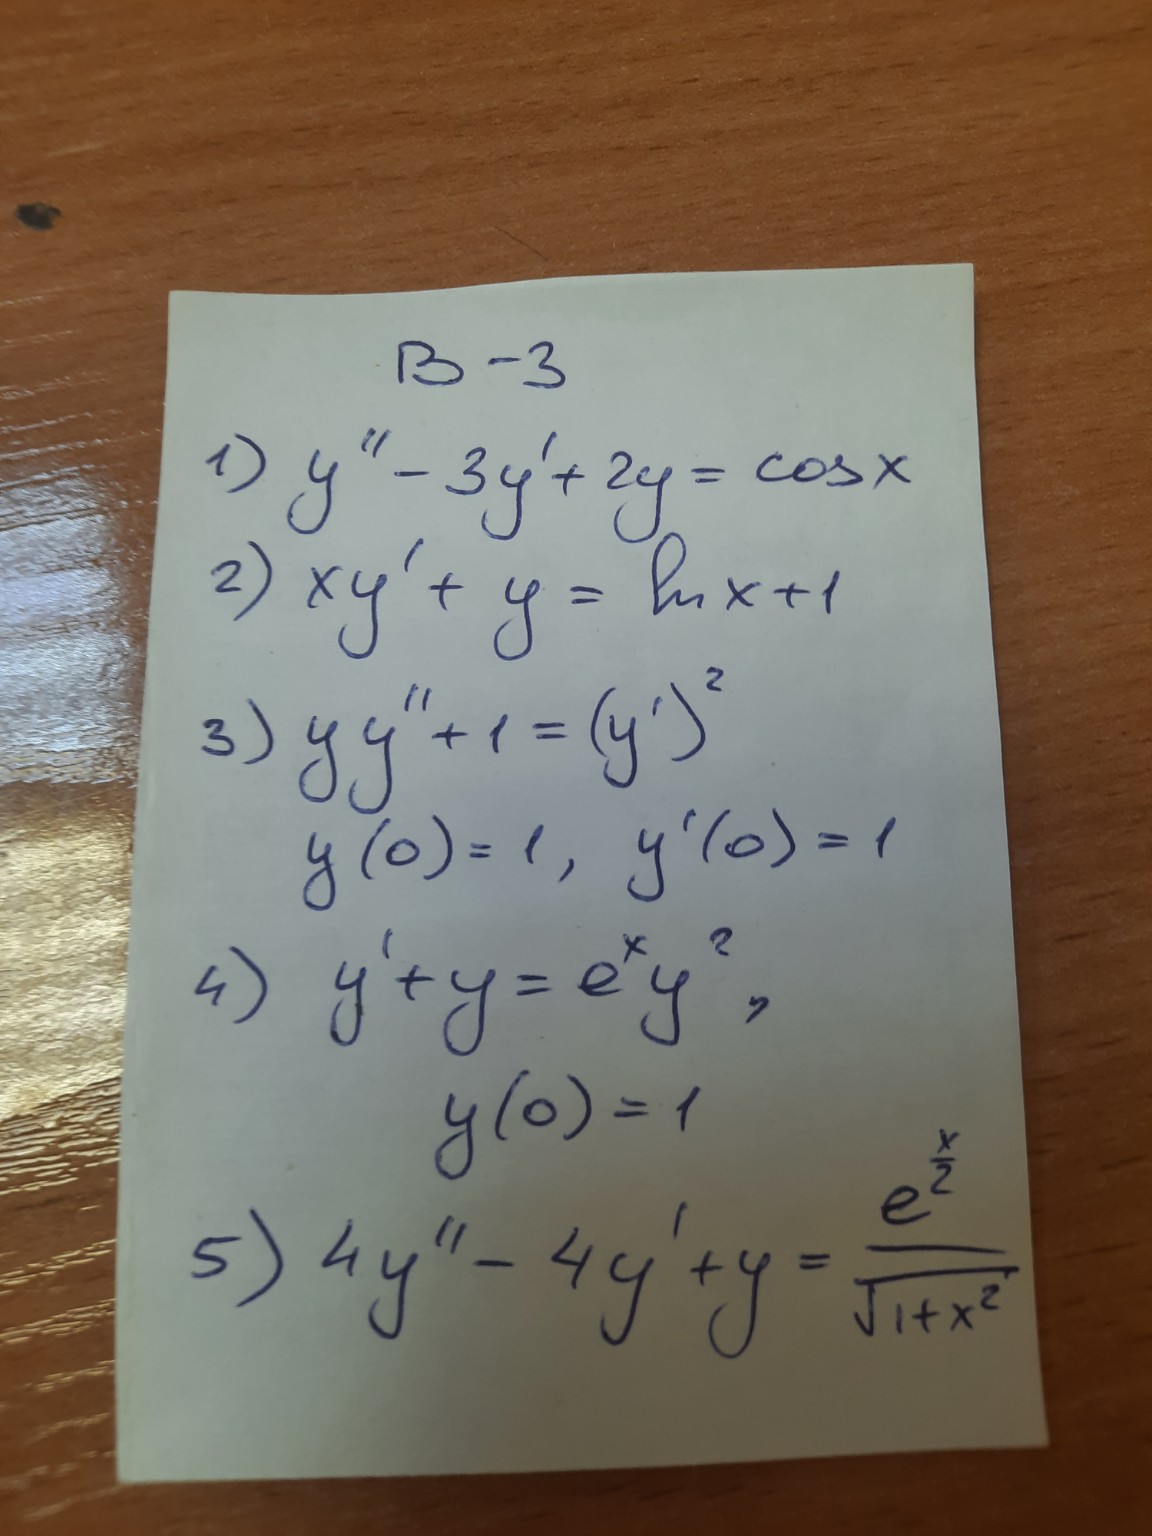 В-3
1) y'' - 3y' + 2y = cos x
2) xy' + y = ln x + 1
3) yy'' + 1 = (y')²
y(0) = 1, y'(0) = 1
4) y' + y = eˣy²,
y(0) = 1
5) 4y'' - 4y' + y = e^(x/2) / √(1+x²)